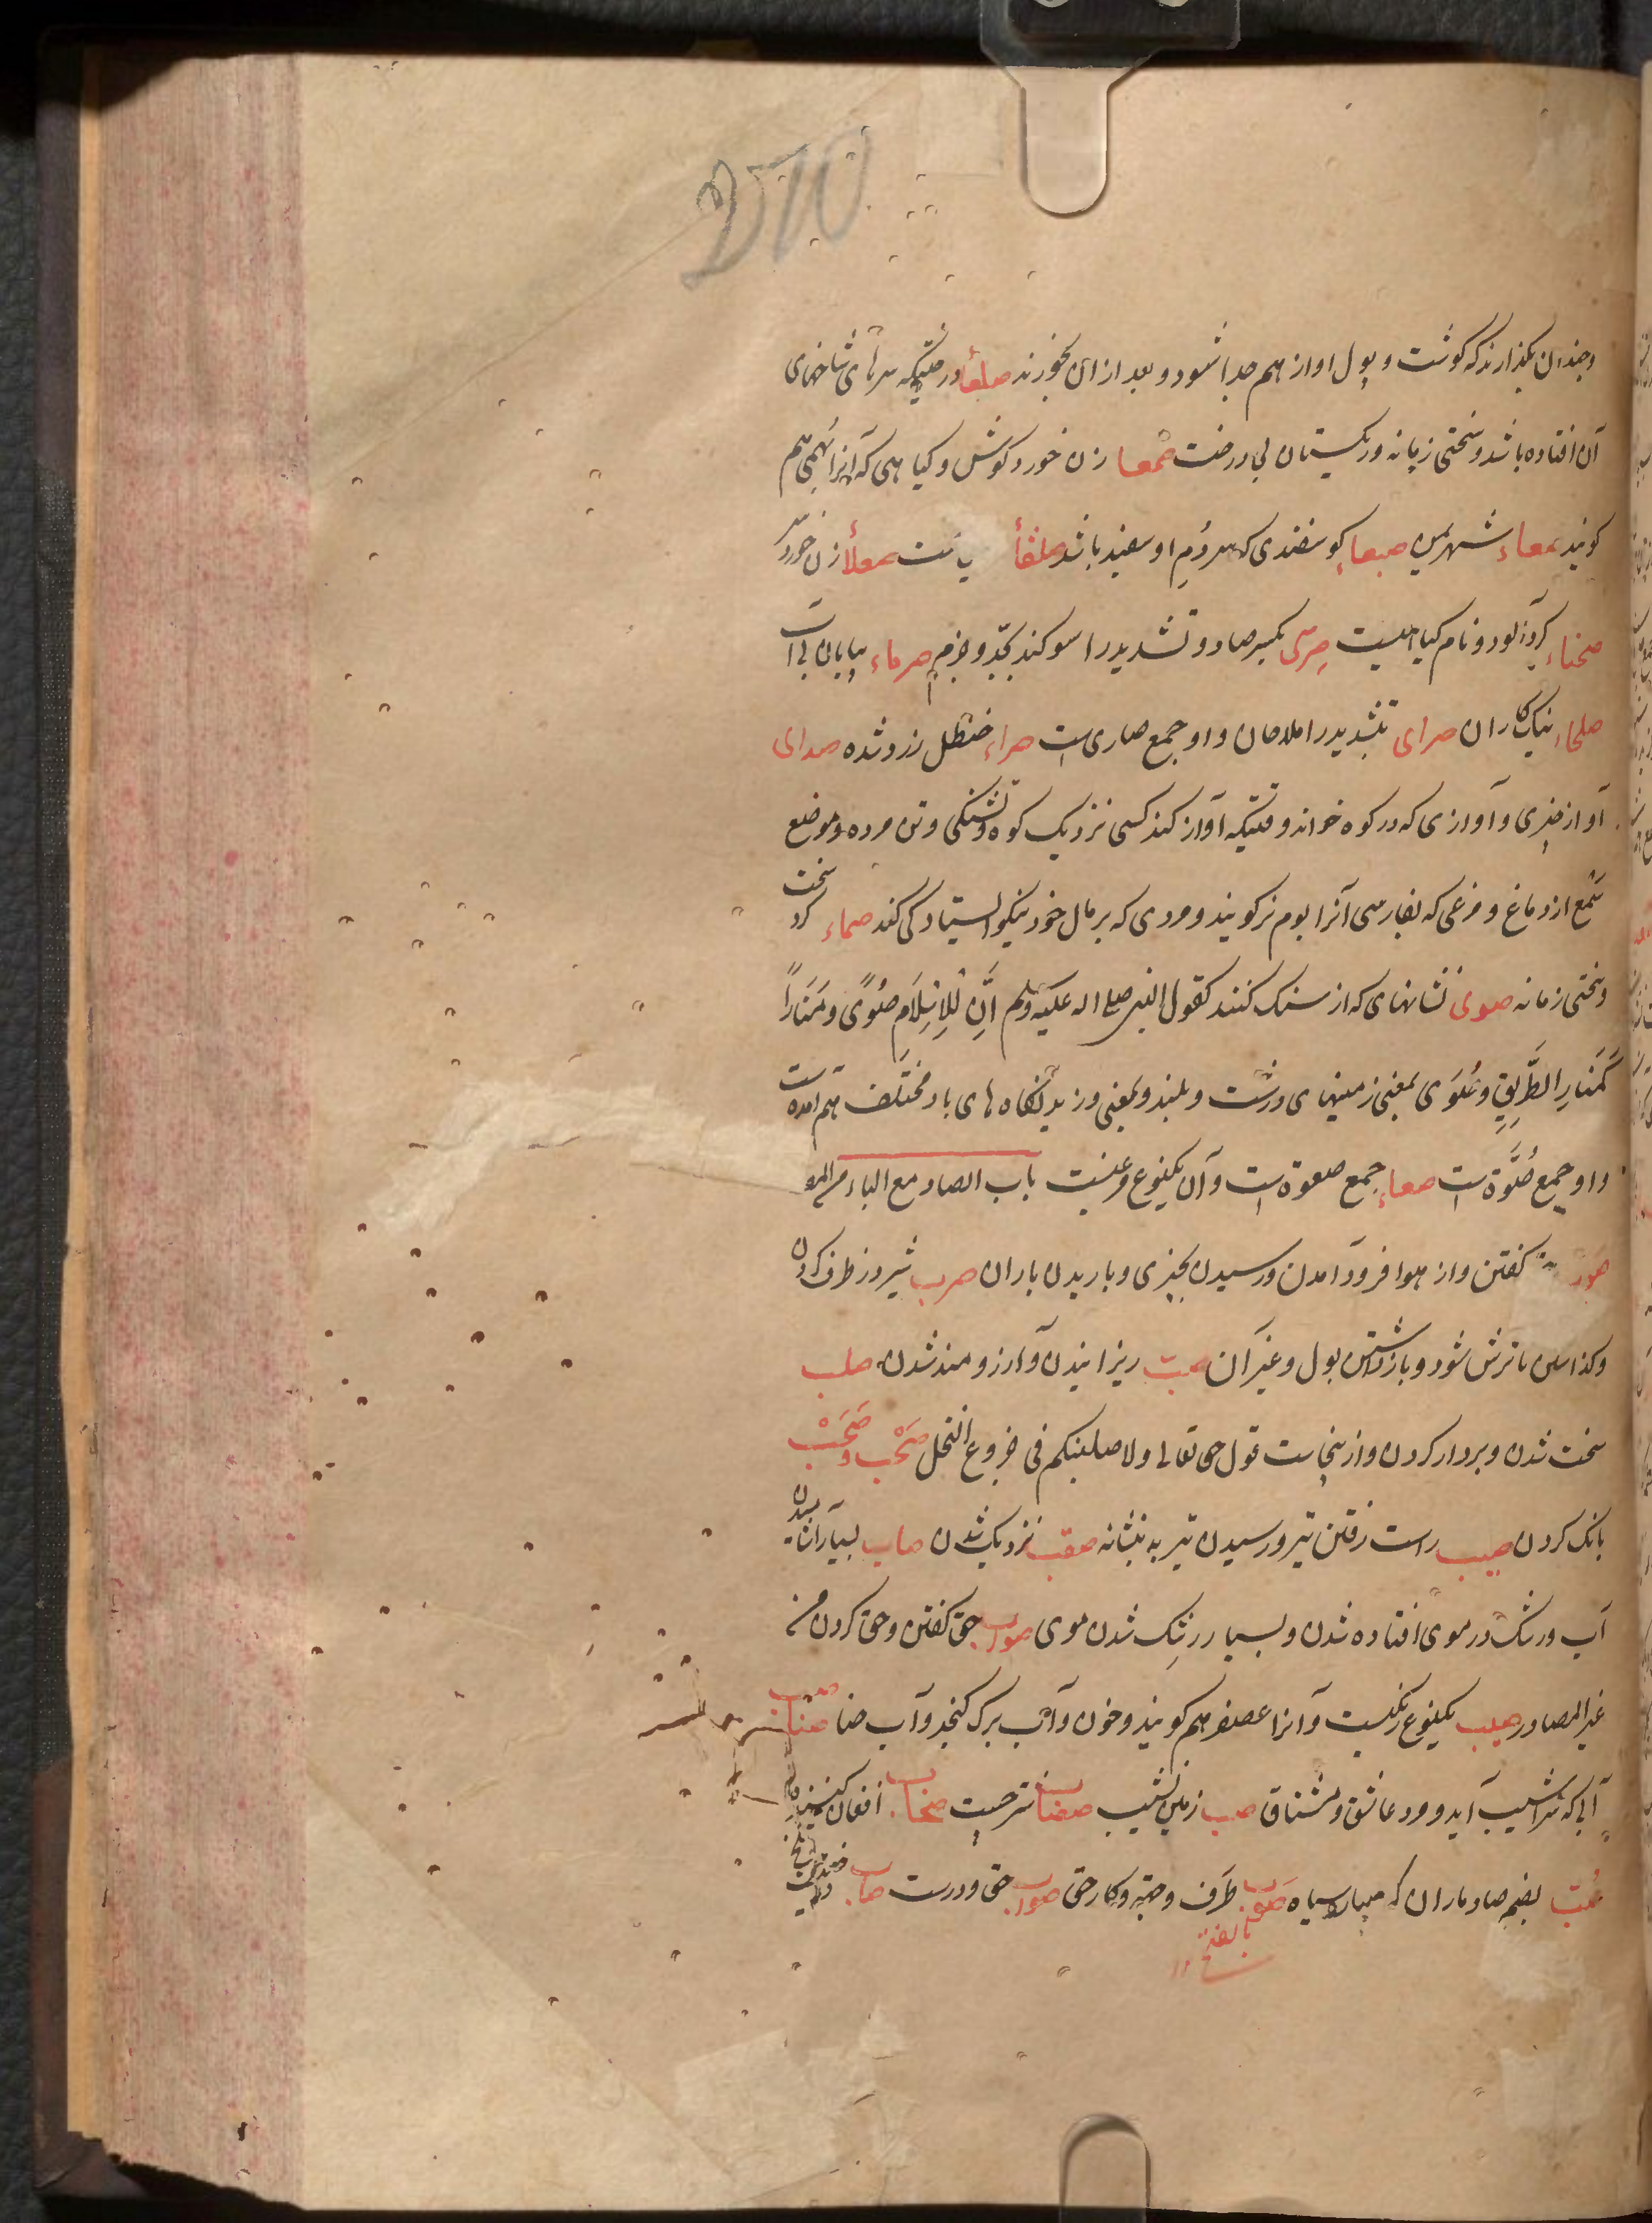 وچندان بگذارند که گوشت و پول او از هم جدا شود و بعد از ان بخورند صلعا درختیکه سرهای شاخهای
آن افتاده باشد و سختی زمانه و ریکستان بی درخت صمعا زن خورد کوش و کیاهی که آنرا بهمی هم
کویند صمعاء شهر یمن صبعاء کوسفندی که سر دُم او سفید باشد صلفأ صعلأ زن خورد سر
صحناء کرد آلود و نام کیاهیست صِرّی بکسر صاد و تشدید را سوکند بجد و جزم صرماء بیابان بی آب
صلحاء نیک کاران صرای بتشدید را ملاحان و او جمع صاری است صراء حنظل زرد شده صدای
آواز چیزی و آوازی که در کوه خواند وقتیکه آواز کند کسی نزدیک کوه و تشنکی و تن مرده و موضع
سَمْع از دماغ و مرغی که بفارسی آنرا بوم نر کویند و مردی که بر مال خود نیکو ایستادکی کند صماء کرد سخت
و سختی زمانه صوی نشانهای که از سنک کنند کقول النبی صلی اله علیه وسلم انّ لِلاِسْلَامِ صُوًی وَ مَنَارًا
کَمَنَارِ الطَّرِیْقِ و صُوَی بمعنی زمینهای درشت و بلند و بمعنی وزیدنکاه های باد مختلف هم امده است
و او جمع صُوَّة است صعاء جمع صعوة است و آن یکنوع مرغیست باب الصاد مع الباء من المصا
صوب گفتن و از هوا فرود آمدن و رسیدن بچیزی و باریدن باران صرب شیر در ظرف کردن
و کذاشتن تا ترش شود و بازداشتن بول و غیر آن صب ریزانیدن و آرزومند شدن صلب
سخت شدن و بردار کردن و ازینجاست قول حق تعالی ولاصلبنکم فی جذوع النخل صَخْب و صَخَب
بانک کردن صیب راست رفتن تیر و رسیدن تیر به نشانه صقب نزدیک شدن صاب بسیار اشامیدن
آب و رشک در موی افتاده شدن و بسیار رشک شدن موی صواب حق گفتن و حق کردن من
غیر المصادر صبیب یکنوع رنکیست و آنرا عصفر هم کویند و خون و آب برک کنجد و آب حنا صناب صبب
آبی که سراشیب آید و مرد عاشق و مشتاق صب زمین نشیب صخاب افغان کننده
صُبّ بضم صاد باران که بسیار سیاه صوب طرف و جهة و کار حق صواب حق و درست صاب درخت تلخ
بالفتح